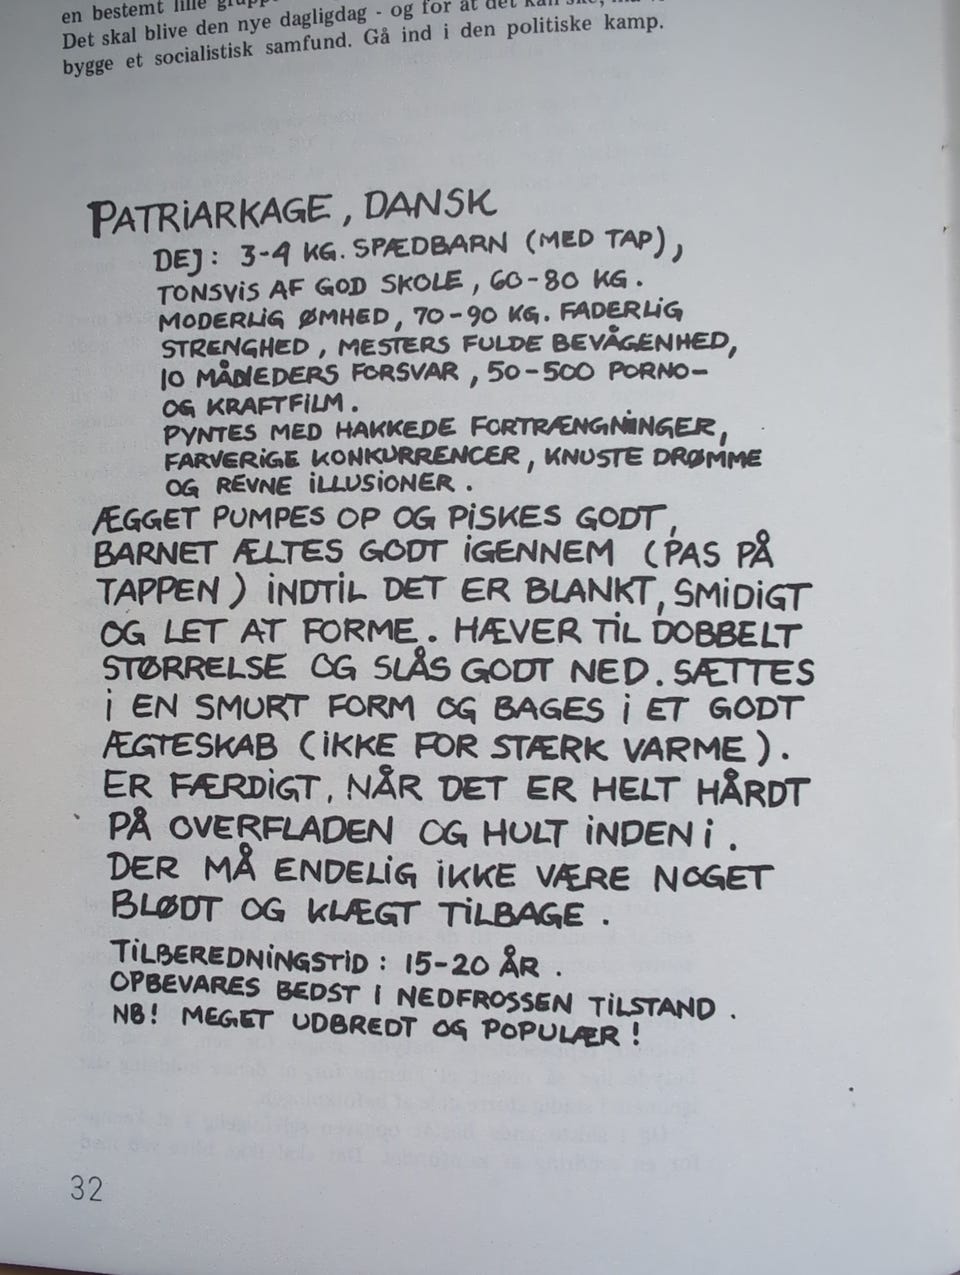 en bestemt lille
Det skal blive den nye dagligdag - og for at det kan ske,
bygge et socialistisk samfund. Gå ind i den politiske kamp.
PATRIARKAGE, DANSK
DEJ: 3-4 KG. SPÆDBARN (MED TAP),
TONSVIS AF GOD SKOLE, 60-80 KG.
MODERLIG ØMHED, 70-90 KG. FADERLIG
STRENGHED, MESTERS FULDE BEVÅGENHED,
10 MÅNEDERS FORSVAR, 50-500 PORNO-
OG KRAFTFILM.
PYNTES MED HAKKEDE FORTRÆNGNINGER,
FARVERIGE KONKURRENCER, KNUSTE DRØMME
OG REVNE ILLUSIONER.
ÆGGET PUMPES OP OG PISKES GODT,
BARNET ÆLTES GODT IGENNEM (PAS PÅ
TAPPEN) INDTIL DET ER BLANKT, SMIDIGT
OG LET AT FORME. HÆVER TIL DOBBELT
STØRRELSE OG SLÅS GODT NED. SÆTTES
I EN SMURT FORM OG BAGES I ET GODT
ÆGTESKAB (IKKE FOR STÆRK VARME).
ER FÆRDIGT, NÅR DET ER HELT HÅRDT
PÅ OVERFLADEN OG HULT INDENI.
DER MÅ ENDELIG IKKE VÆRE NOGET
BLØDT OG KLÆGT TILBAGE.
TILBEREDNINGSTID: 15-20 ÅR.
OPBEVARES BEDST I NEDFROSSEN TILSTAND.
NB! MEGET UDBREDT OG POPULÆR!
32